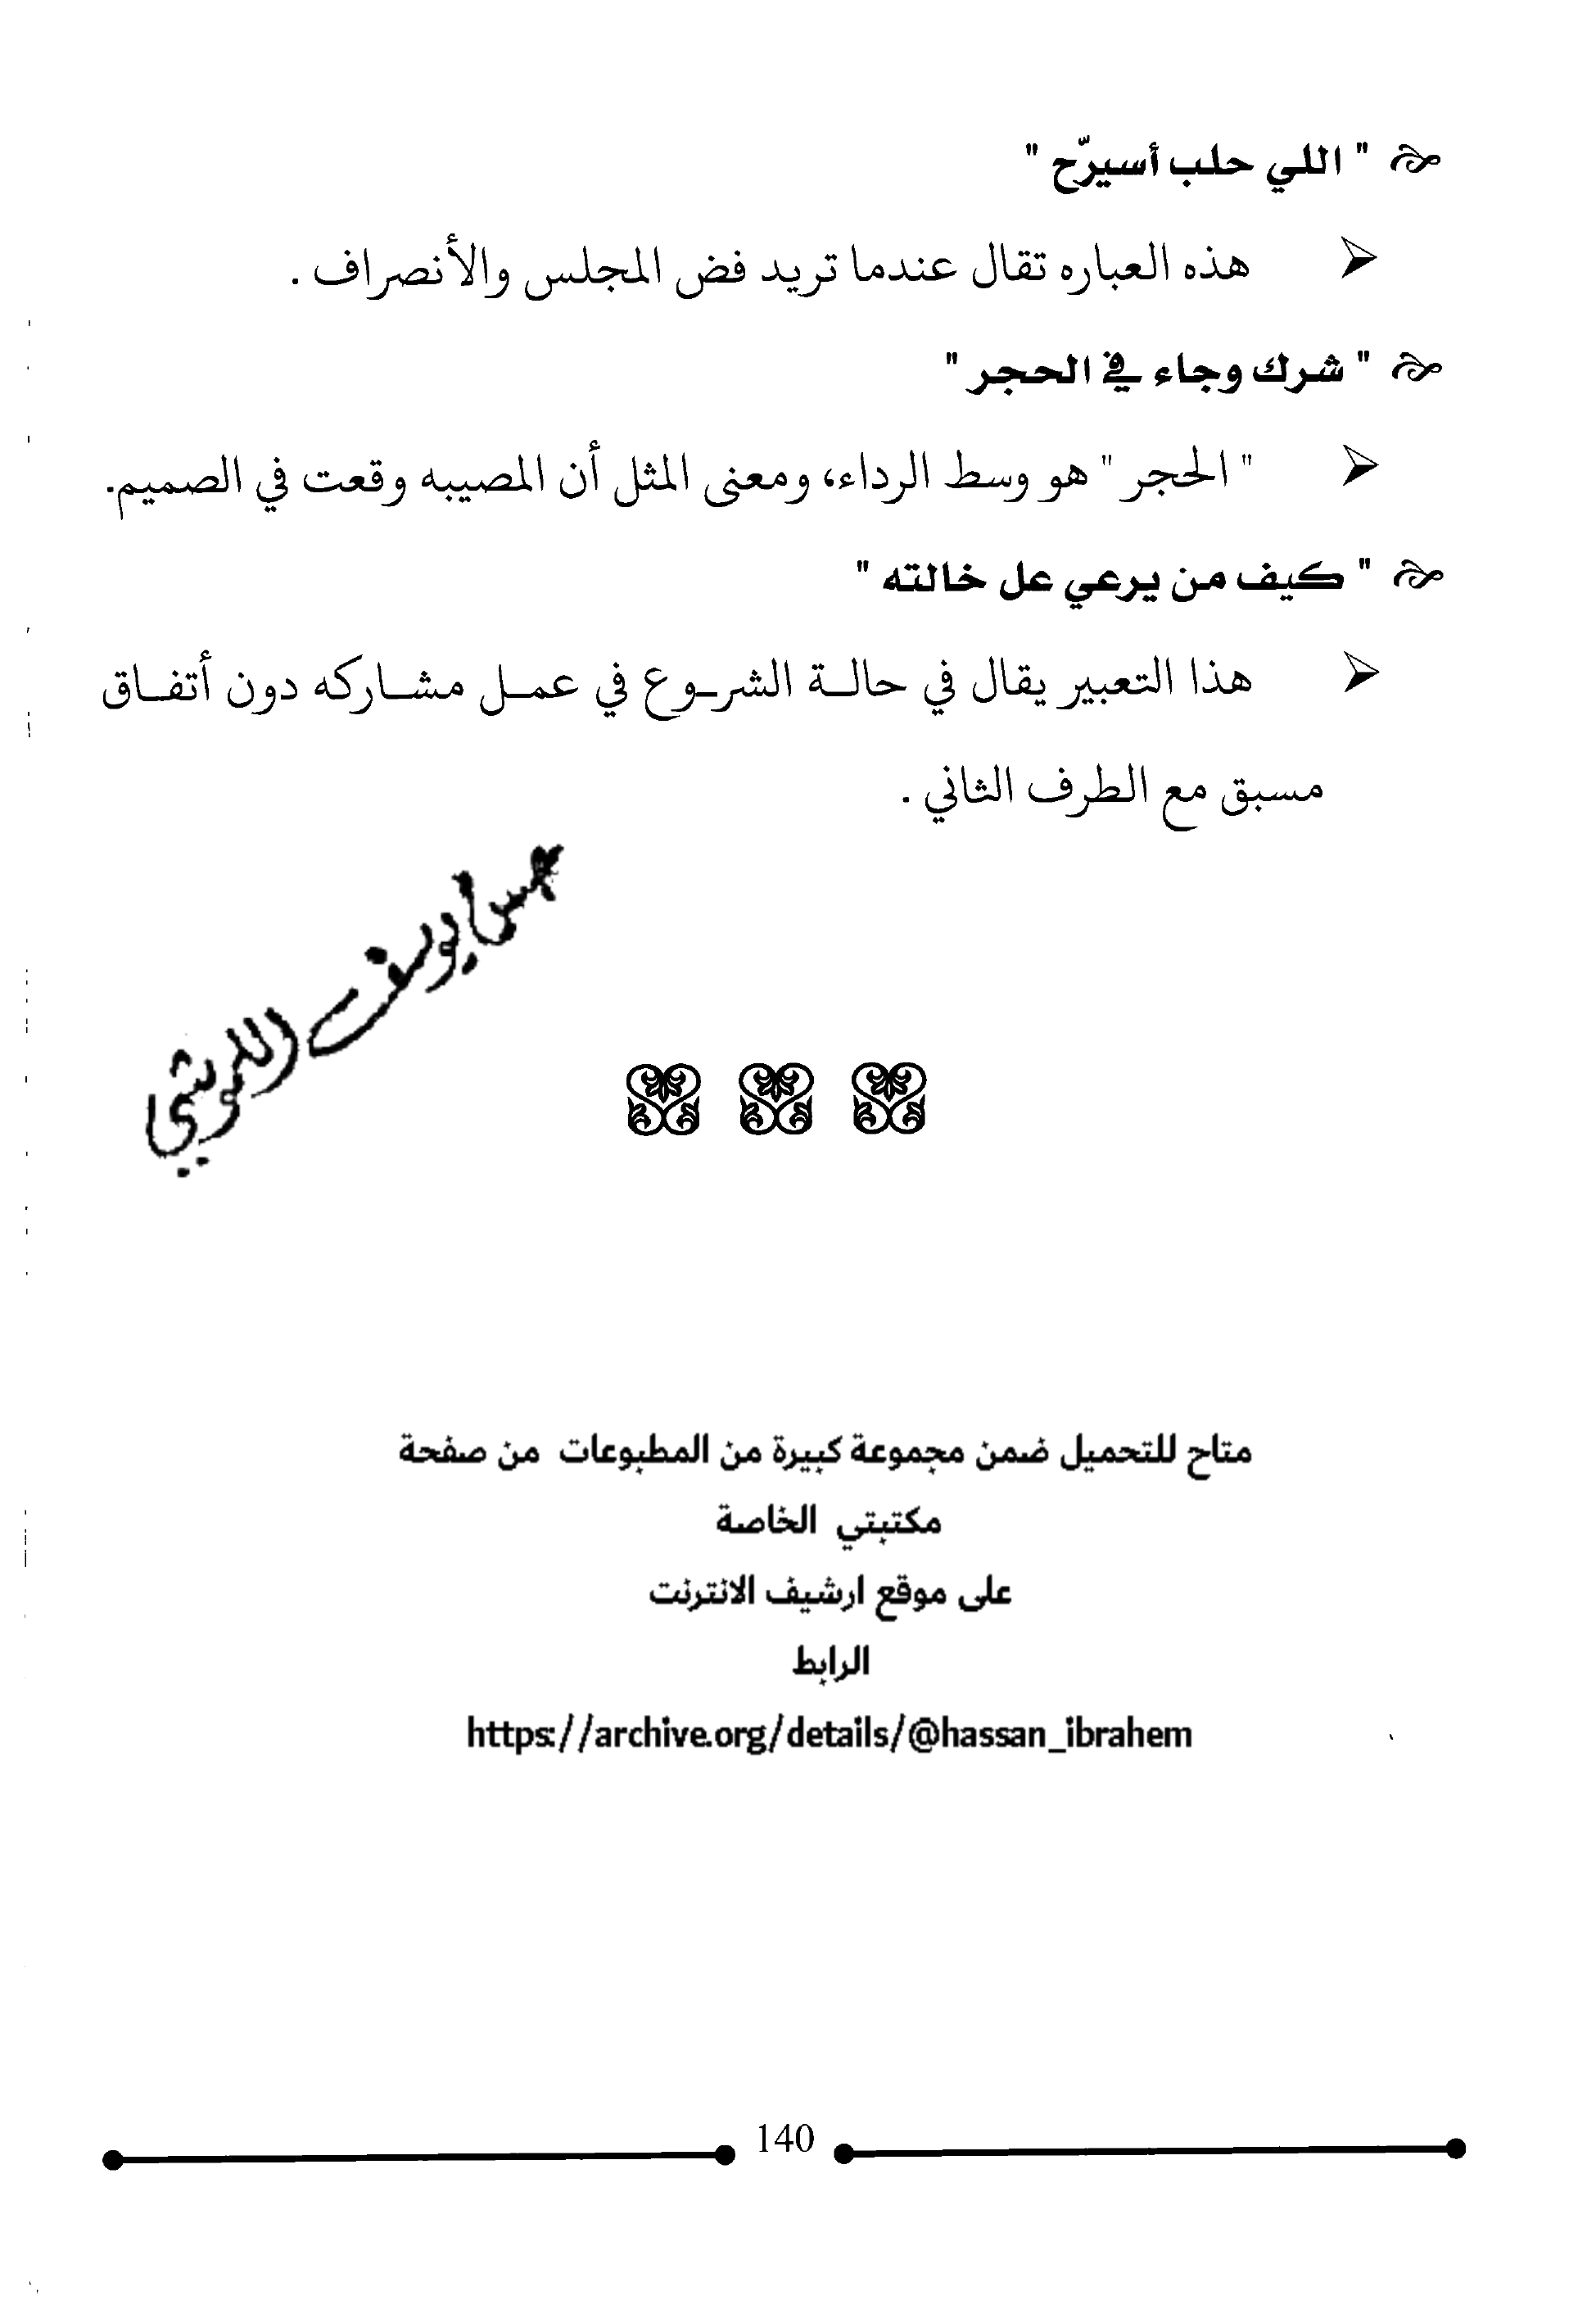 " اللي حلب أسيرّح "
هذه العباره تقال عندما تريد فض المجلس والأنصراف .
" شرك وجاء في الحجر "
" الحجر " هو وسط الرداء، ومعنى المثل أن المصيبه وقعت في الصميم.
" كيف من يرعي عل خالته "
هذا التعبير يقال في حالـة الشرـوع في عمـل مشـاركه دون أتفـاق
مسبق مع الطرف الثاني .
يوسف
متاح للتحميل ضمن مجموعة كبيرة من المطبوعات من صفحة
مكتبتي الخاصة
على موقع ارشيف الانترنت
الرابط
https://archive.org/details/@hassan_ibrahem
140